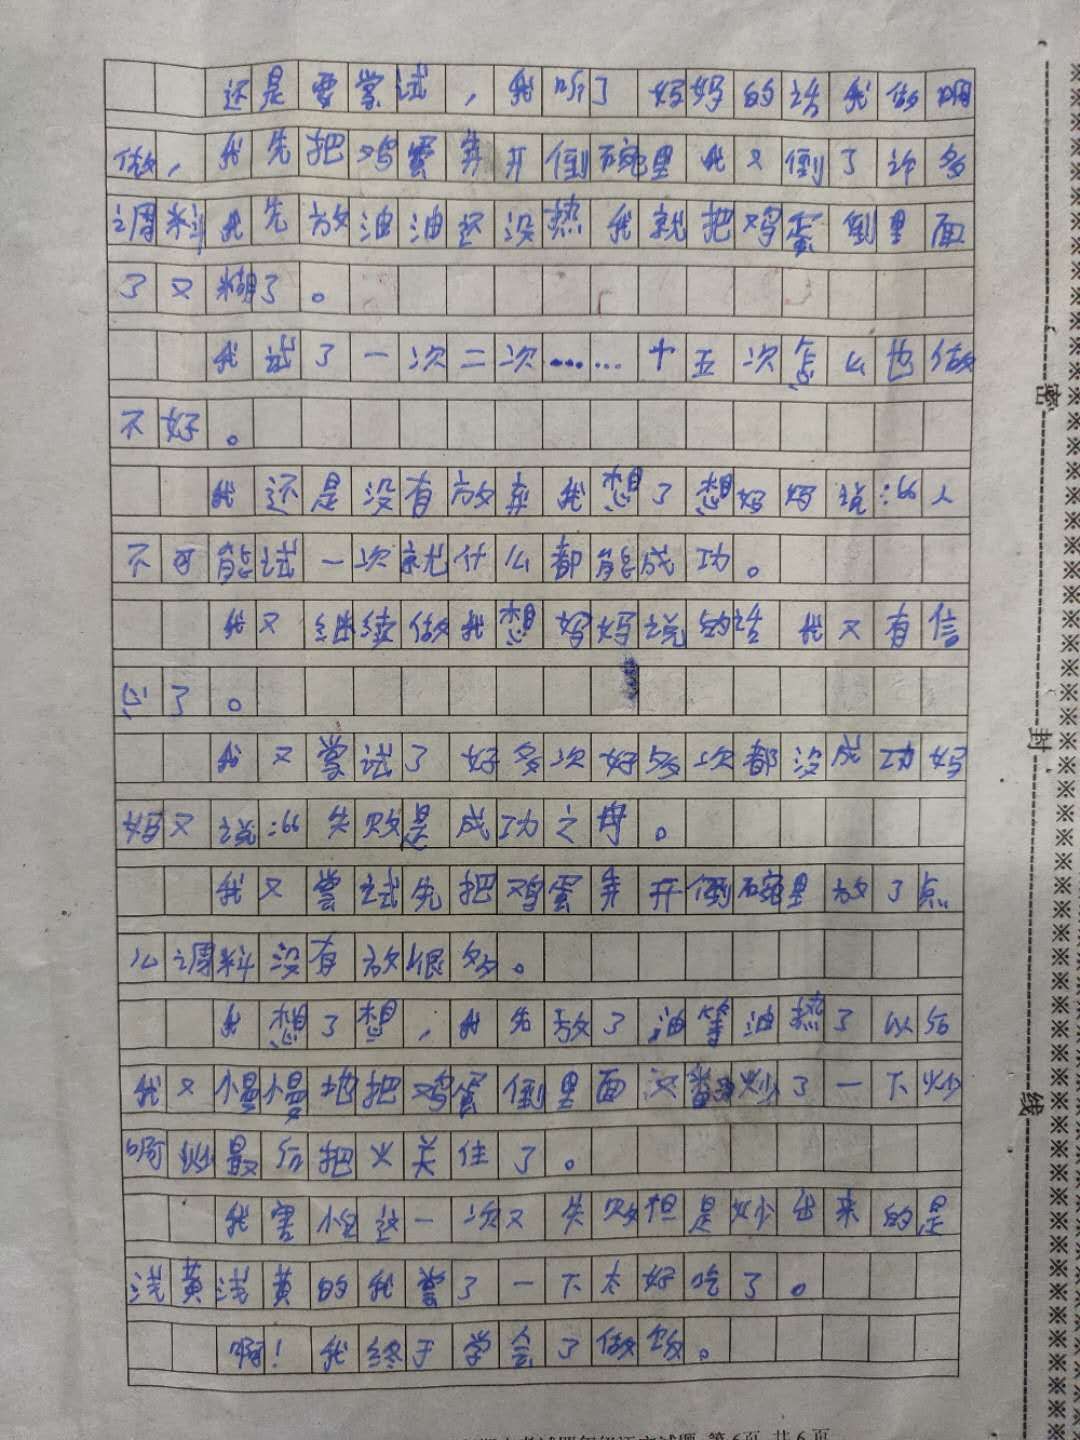 还是要尝试，我听了妈妈的话我做啊
做，我先把鸡蛋弄开倒碗里我又倒了许多
调料我先放油油还没热我就把鸡蛋倒里面
了又糊了。
我试了一次二次……十五次怎么也做
不好。
我还是没有放弃我想了想妈妈说：“人
不可能试一次就什么都能成功。
我又继续做我想妈妈说的话我又有信
心了。
我又尝试了好多次好多次都没成功妈
妈又说：“失败是成功之母。
我又尝试先把鸡蛋弄开倒碗里放了点
么调料没有放很多。
我想了想，我先放了油等油热了以后
我又慢慢地把鸡蛋倒里面又翻炒了一下炒
啊炒最后把火关住了。
我害怕这一次又失败但是炒出来的是
浅黄浅黄的我尝了一下太好吃了。
啊！我终于学会了做饭。
密
封
线
第6页 共6页